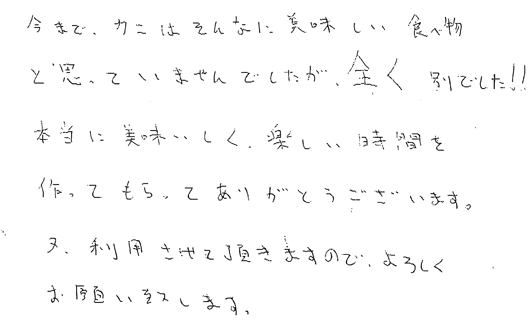 今まで、カニはそんなに美味しい食べ物
と思っていませんでしたが、全く別でした!!
本当に美味いしく、楽しい時間を
作ってもらってありがとうございます。
又、利用させて頂きますので、よろしく
お願い致します。